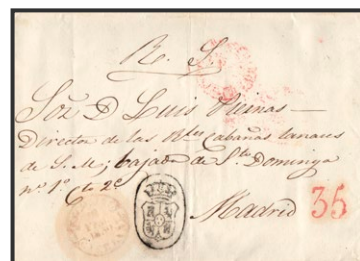 R. S.
Sor. D Luis Reinas —
Director de las Rles Cabañas lanares
de S. M; bajada de Sto Domingo
nº 1º cto 2º
Madrid 35